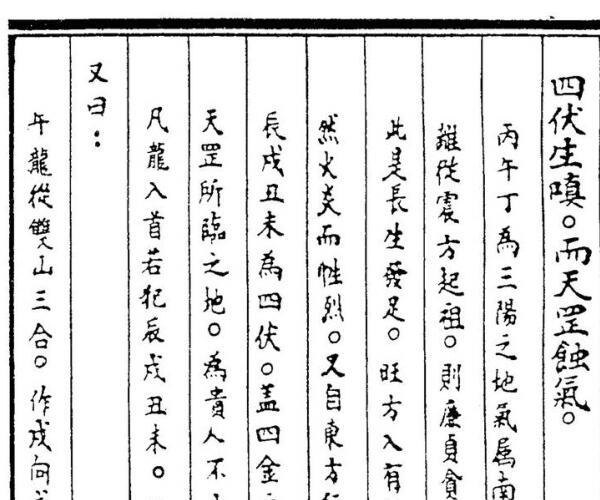 四伏生嗔。而天罡蝕氣。
丙午丁為三陽之地氣属南
離從震方起祖。則廉貞貪
此是長生發足。旺方入有
然火炎而性烈。又自東方行
辰戌丑未為四伏。盖四金
天罡所臨之地。為貴人不
凡龍入首若犯辰戌丑未。
又曰：
午龍從雙山三合。作戌向